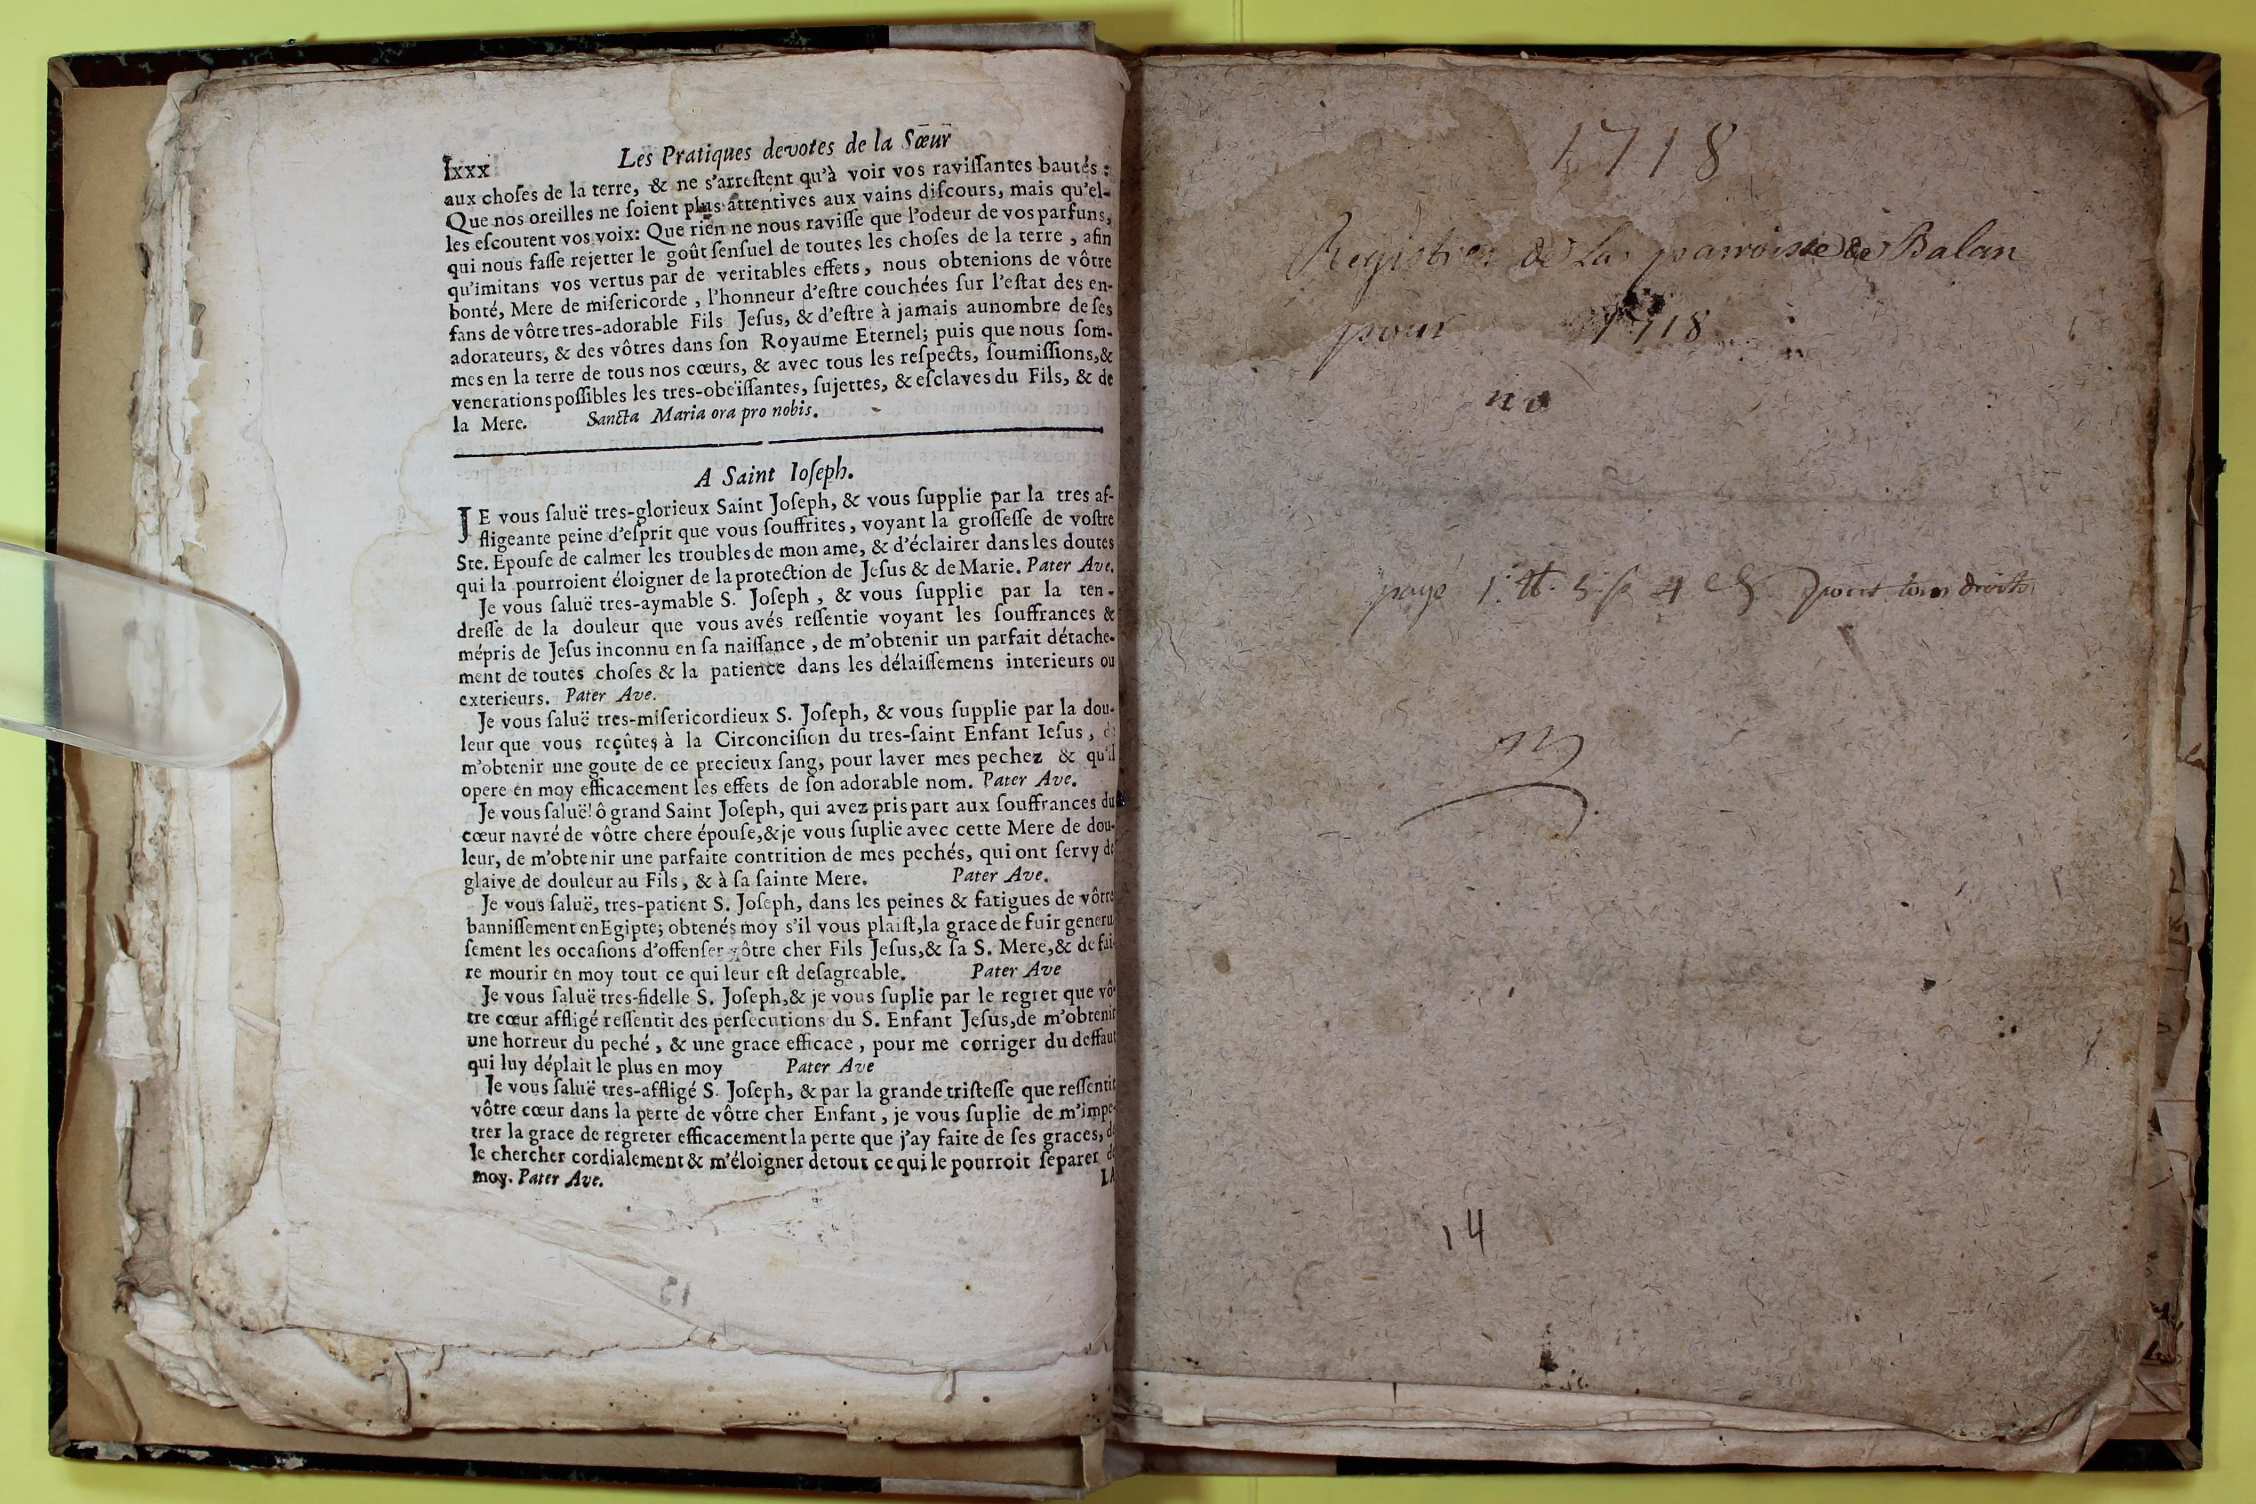 lxxx Les Pratiques devotes de la Sœur
aux choſes de la terre, & ne s'arreſtent qu'à voir vos raviſſantes bautés :
Que nos oreilles ne ſoient plus attentives aux vains diſcours, mais qu'el-
les eſcoutent vos voix: Que rien ne nous raviſſe que l'odeur de vos parfuns,
qui nous faſſe rejetter le goût ſenſuel de toutes les choſes de la terre , afin
qu'imitans vos vertus par de veritables effets, nous obtenions de vôtre
bonté, Mere de miſericorde , l'honneur d'eſtre couchées ſur l'eſtat des en-
fans de vôtre tres-adorable Fils Jeſus, & d'eſtre à jamais aunombre de ſes
adorateurs, & des vôtres dans ſon Royaume Eternel; puis que nous ſom-
mes en la terre de tous nos cœurs, & avec tous les reſpects, ſoumiſſions,&
venerations poſſibles les tres-obeïſſantes, ſujettes, & eſclaves du Fils, & de
la Mere. Sancta Maria ora pro nobis.
A Saint Ioſeph.
JE vous ſaluë tres-glorieux Saint Joſeph, & vous ſupplie par la tres af-
fligeante peine d'eſprit que vous ſouffrites, voyant la groſſeſſe de voſtre
Ste. Epouſe de calmer les troubles de mon ame, & d'éclairer dans les doutes
qui la pourroient éloigner de la protection de Jeſus & de Marie. Pater Ave.
Je vous ſaluë tres-aymable S. Joſeph , & vous ſupplie par la ten-
dreſſe de la douleur que vous avés reſſentie voyant les ſouffrances &
mépris de Jeſus inconnu en ſa naiſſance , de m'obtenir un parfait détache-
ment de toutes choſes & la patience dans les délaiſſemens interieurs ou
exterieurs. Pater Ave.
Je vous ſaluë tres-miſericordieux S. Joſeph, & vous ſupplie par la dou-
leur que vous reçûtes à la Circonciſion du tres-ſaint Enfant Ieſus , de
m'obtenir une goute de ce precieux ſang, pour laver mes pechez & qu'il
opere en moy efficacement les effets de ſon adorable nom. Pater Ave.
Je vous ſaluë! ô grand Saint Joſeph, qui avez pris part aux ſouffrances du
cœur navré de vôtre chere épouſe,&je vous ſuplie avec cette Mere de dou-
leur, de m'obtenir une parfaite contrition de mes pechés, qui ont ſervy de
glaive de douleur au Fils, & à ſa ſainte Mere. Pater Ave.
Je vous ſaluë, tres-patient S. Joſeph, dans les peines & fatigues de vôtre
banniſſement enEgipte; obtenés moy s'il vous plaiſt,la grace de fuir generu
ſement les occaſions d'offenſer vôtre cher Fils Jeſus,& ſa S. Mere,& de fai-
re mourir en moy tout ce qui leur eſt deſagreable. Pater Ave
Je vous ſaluë tres-fidelle S. Joſeph,& je vous ſuplie par le regret que vô-
tre cœur affligé reſſentit des perſecutions du S. Enfant Jeſus,de m'obtenir
une horreur du peché , & une grace efficace , pour me corriger du deffaut
qui luy déplait le plus en moy Pater Ave
Je vous ſaluë tres-affligé S. Joſeph, & par la grande triſteſſe que reſſentit
vôtre cœur dans la perte de vôtre cher Enfant , je vous ſuplie de m'impe-
trer la grace de regreter efficacement la perte que j'ay faite de ſes graces, de
le chercher cordialement & m'éloigner de tout ce qui le pourroit ſeparer de
moy. Pater Ave. LA
1718
Registres de La parroisse de Balan
pour 1718
payé 1 tt 5 s 4 d pour tous droits
14